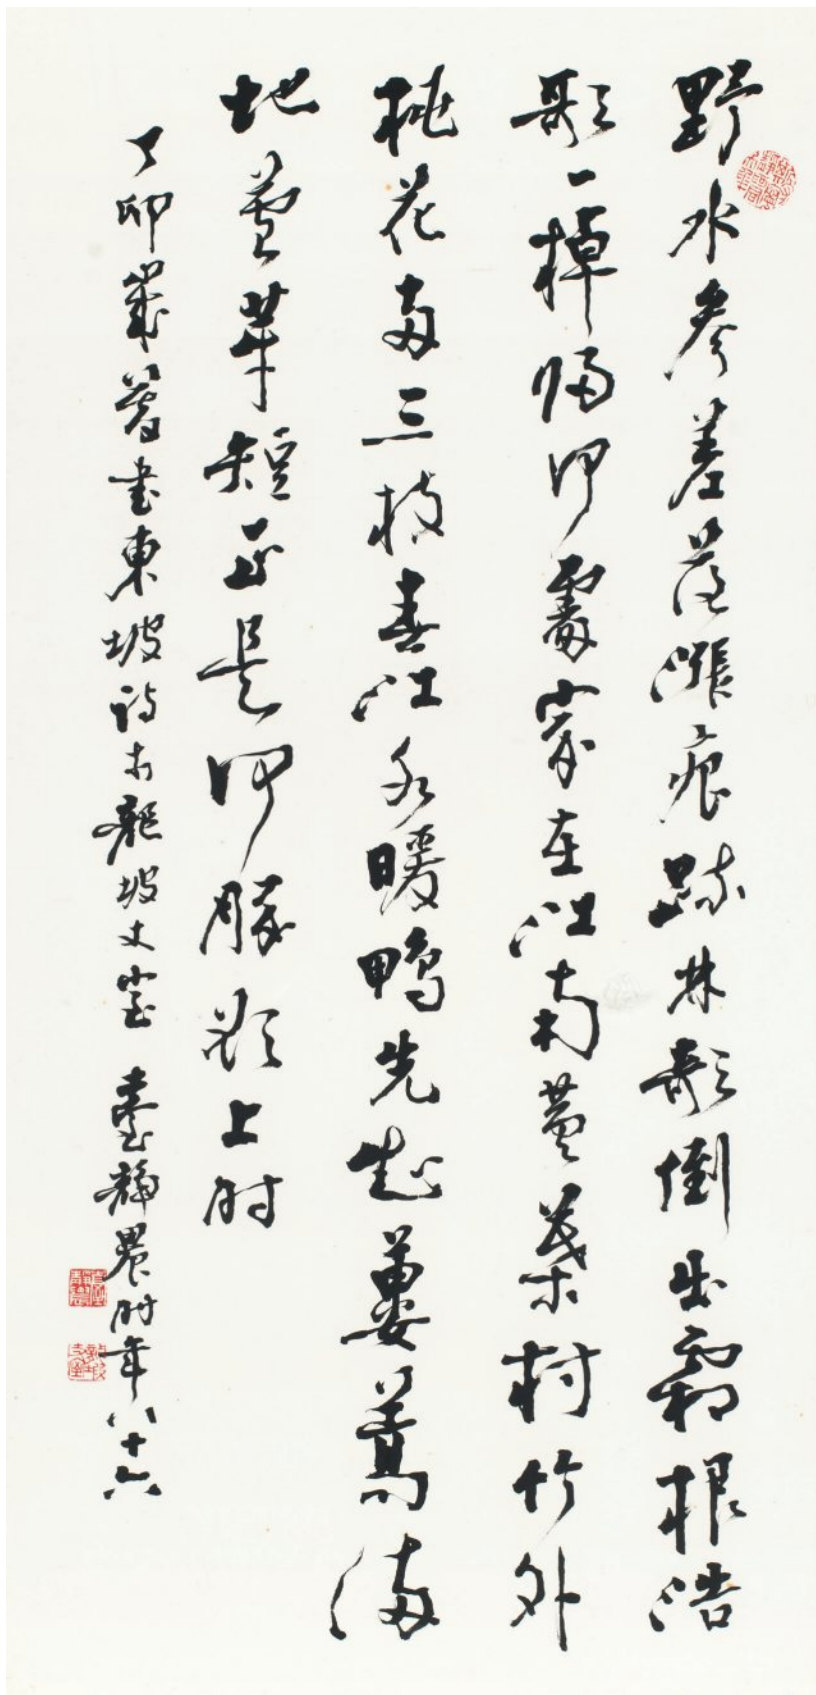 野水參差落漲痕疏林欹倒出霜根浩
歌一棹歸何處家在江南黃葉村竹外
桃花兩三枝春江水暖鴨先知蔞蒿滿
地蘆芽短正是河豚欲上時
丁卯歲暮書東坡詩於龍坡丈室 臺靜農時年八十六